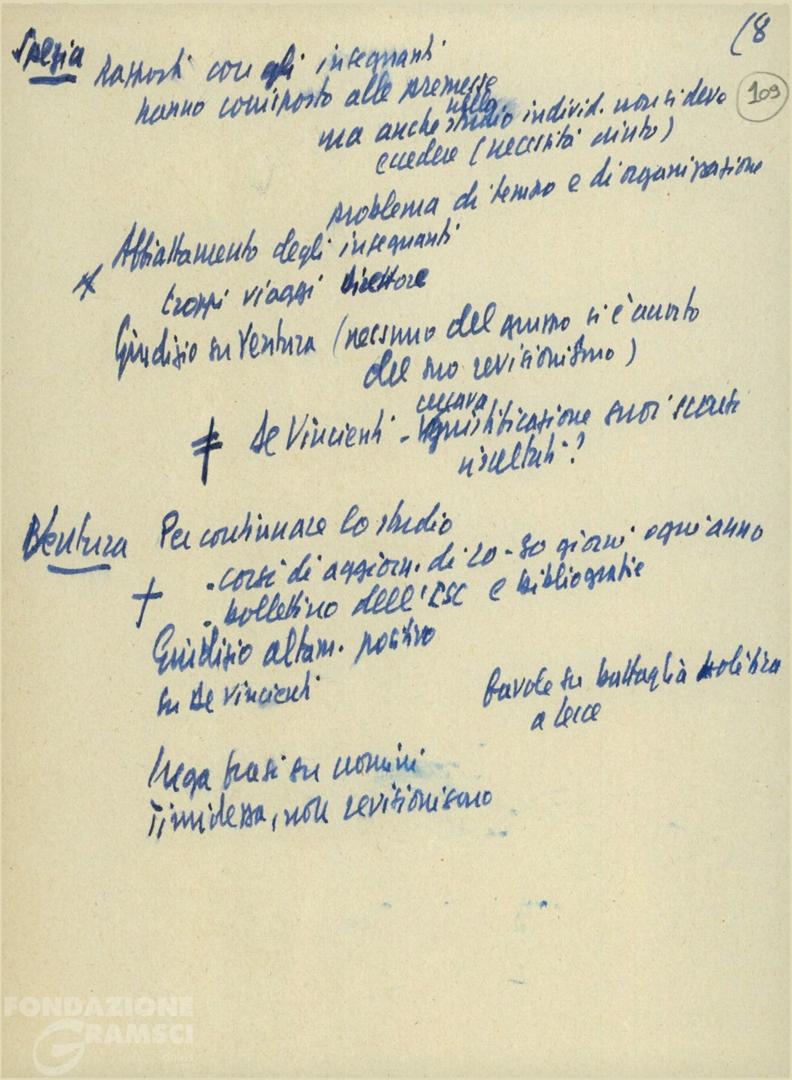 (8
109
Spezia Rapporti con gli insegnanti
hanno corrisposto alle premesse
ma anche nello studio individ. non si deve
eccedere (necessità aiuto)
problema di tempo e di organizzazione
Affiattamento degli insegnanti
troppi viaggi direttore
Giudizio su Ventura (nessuno del gruppo si è accorto
del suo revisionismo)
≠ De Vincienti - cercava giustificazione suoi scarsi
risultati?
Ventura Per continuare lo studio
. corsi di aggiorn. di 20-30 giorni ogni anno
. bollettino dell'ISC e bibliografie
Giudizio altam. positivo
su De Vincienti
Favole su battaglia politica
a Lecce
Nega frasi su uomini
Timidezza, non revisionismo
FONDAZIONE
GRAMSCI